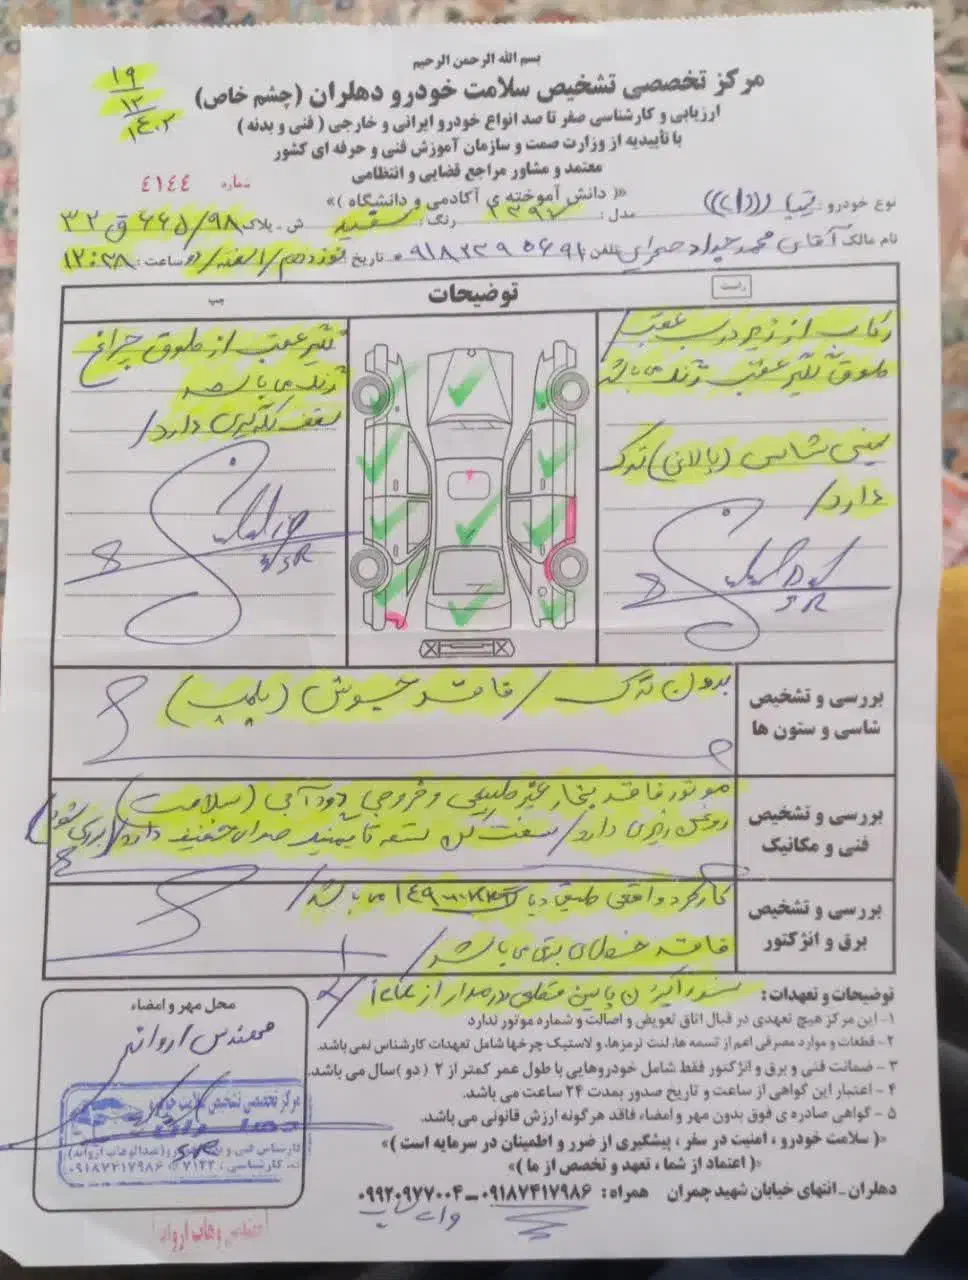 بسم الله الرحمن الرحیم
۱۹
۱۲
۱۴۰۲
مرکز تخصصی تشخیص سلامت خودرو دهلران (چشم خاص)
ارزیابی و کارشناسی صفر تا صد انواع خودرو ایرانی و خارجی ( فنی و بدنه )
با تأییدیه از وزارت صمت و سازمان آموزش فنی و حرفه ای کشور
معتمد و مشاور مراجع قضایی و انتظامی
«( دانش آموخته ی آکادمی و دانشگاه )»
شماره ٤١٤٤
نوع خودرو: تیبا مدل: ۱۳۹۶ رنگ: سفید ش - پلاک: ۹۸/ ۶۶۵ ق ۳۲
نام مالک: آقای محمد جواد تلفن: تاریخ: نوزدهم/اسفند/ ساعت: ۱۲:۲۸
راست
توضیحات
چپ
رکاب از زیر درب عقب/
گلگیر عقب رنگ می باشد
سینی شاسی (بالائی) ترک
دارد/
گلگیر عقب از طوق چراغ
رنگ می باشد
سقف لکه گیری دارد/
بررسی و تشخیص
شاسی و ستون ها
بدون ترک / فاقد جوش (پلمپ)
بررسی و تشخیص
فنی و مکانیک
موتور فاقد بخار غیر طبیعی و خروجی دود آبی (سلامت)
روغن ریزی دارد/ سفت کن تسمه تایمینگ صدای خفیف دارد/ (بررسی شود)
بررسی و تشخیص
برق و انژکتور
کارکرد واقعی طبق دیاگ می باشد/
فاقد خطای برقی می باشد/
توضیحات و تعهدات: سنسور اکسیژن پایین قطعی در مدار
۱- این مرکز هیچ تعهدی در قبال اتاق تعویض و اصالت و شماره موتور ندارد
۲- قطعات و موارد مصرفی اعم از تسمه ها، لنت ترمزها، و لاستیک چرخها شامل تعهدات کارشناس نمی باشد.
۳ - ضمانت فنی و برق و انژکتور فقط شامل خودروهایی با طول عمر کمتر از ۲ ( دو ) سال می باشد.
۴ - اعتبار این گواهی از ساعت و تاریخ صدور بمدت ۲۴ ساعت می باشد.
۵ - گواهی صادره ی فوق بدون مهر و امضاء فاقد هرگونه ارزش قانونی می باشد.
«( سلامت خودرو ، امنیت در سفر ، پیشگیری از ضرر و اطمینان در سرمایه است )»
«( اعتماد از شما ، تعهد و تخصص از ما )»
دهلران - انتهای خیابان شهید چمران همراه: ۰۹۱۸۷۴۱۷۹۸۶ - ۰۹۹۲۰۹۷۷۰۰۴
واتساپ
محل مهر و امضاء
مهندس اروانه
مرکز تخصصی تشخیص سلامت خودرو
کارشناس فنی و (عبدالوهاب اروانه)
۰۹۱۸۷۴۱۷۹۸۶
مهندس وهاب اروانه